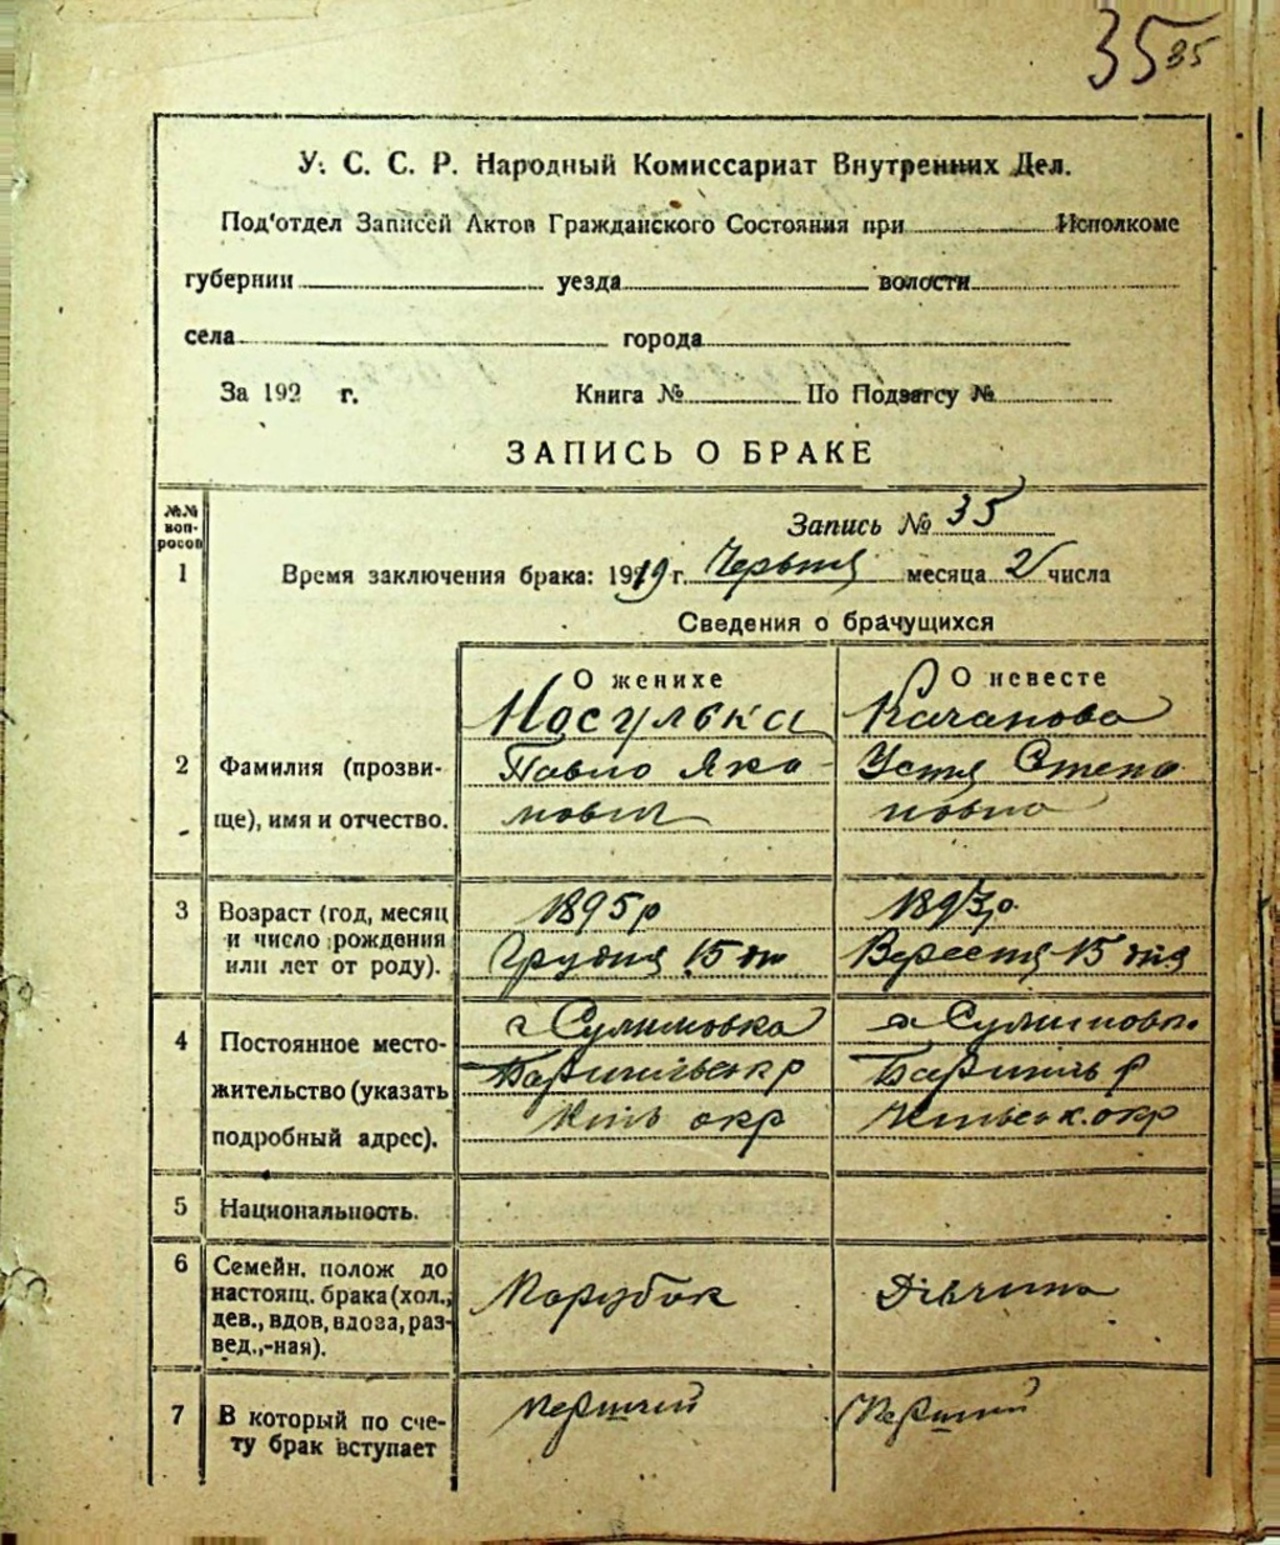 35 35
У. С. С. Р. Народный Комиссариат Внутренних Дел.
Под'отдел Записей Актов Гражданского Состояния при Исполкоме
губернии уезда волости
села города
За 192 г. Книга № По Подзагсу №
ЗАПИСЬ О БРАКЕ
№№ воп-
росов
Запись № 35
1 Время заключения брака: 1919 г. Червня месяца 2 числа
Сведения о брачущихся
О женихе О невесте
Носулька Качанова
2 Фамилия (прозви- Павло Яки- Устя Степа
ще), имя и отчество. мович новна
3 Возраст (год, месяц 1895 р 1893 р.
и число рождения Грудня 15 дня Вересня 15 дня
или лет от роду).
4 Постоянное место- с Сулимовка с Сулимовк.
жительство (указать Баришільськ р Баришіль р
подробный адрес). Київ окр Київськ. окр
5 Национальность.
6 Семейн. полож до
настоящ. брака (хол., Парубок Дівчина
дев., вдов, вдова, раз-
вед.,-ная).
7 В который по сче- перший Перший
ту брак вступает